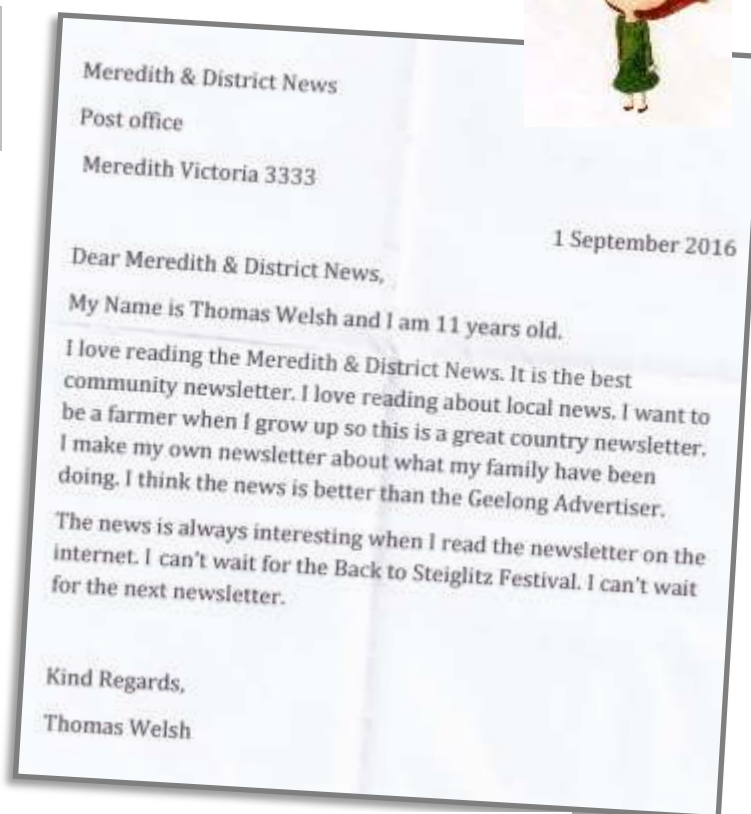 Meredith & District News
Post office
Meredith Victoria 3333
1 September 2016
Dear Meredith & District News,
My Name is Thomas Welsh and I am 11 years old.
I love reading the Meredith & District News. It is the best
community newsletter. I love reading about local news. I want to
be a farmer when I grow up so this is a great country newsletter.
I make my own newsletter about what my family have been
doing. I think the news is better than the Geelong Advertiser.
The news is always interesting when I read the newsletter on the
internet. I can't wait for the Back to Steiglitz Festival. I can't wait
for the next newsletter.
Kind Regards,
Thomas Welsh